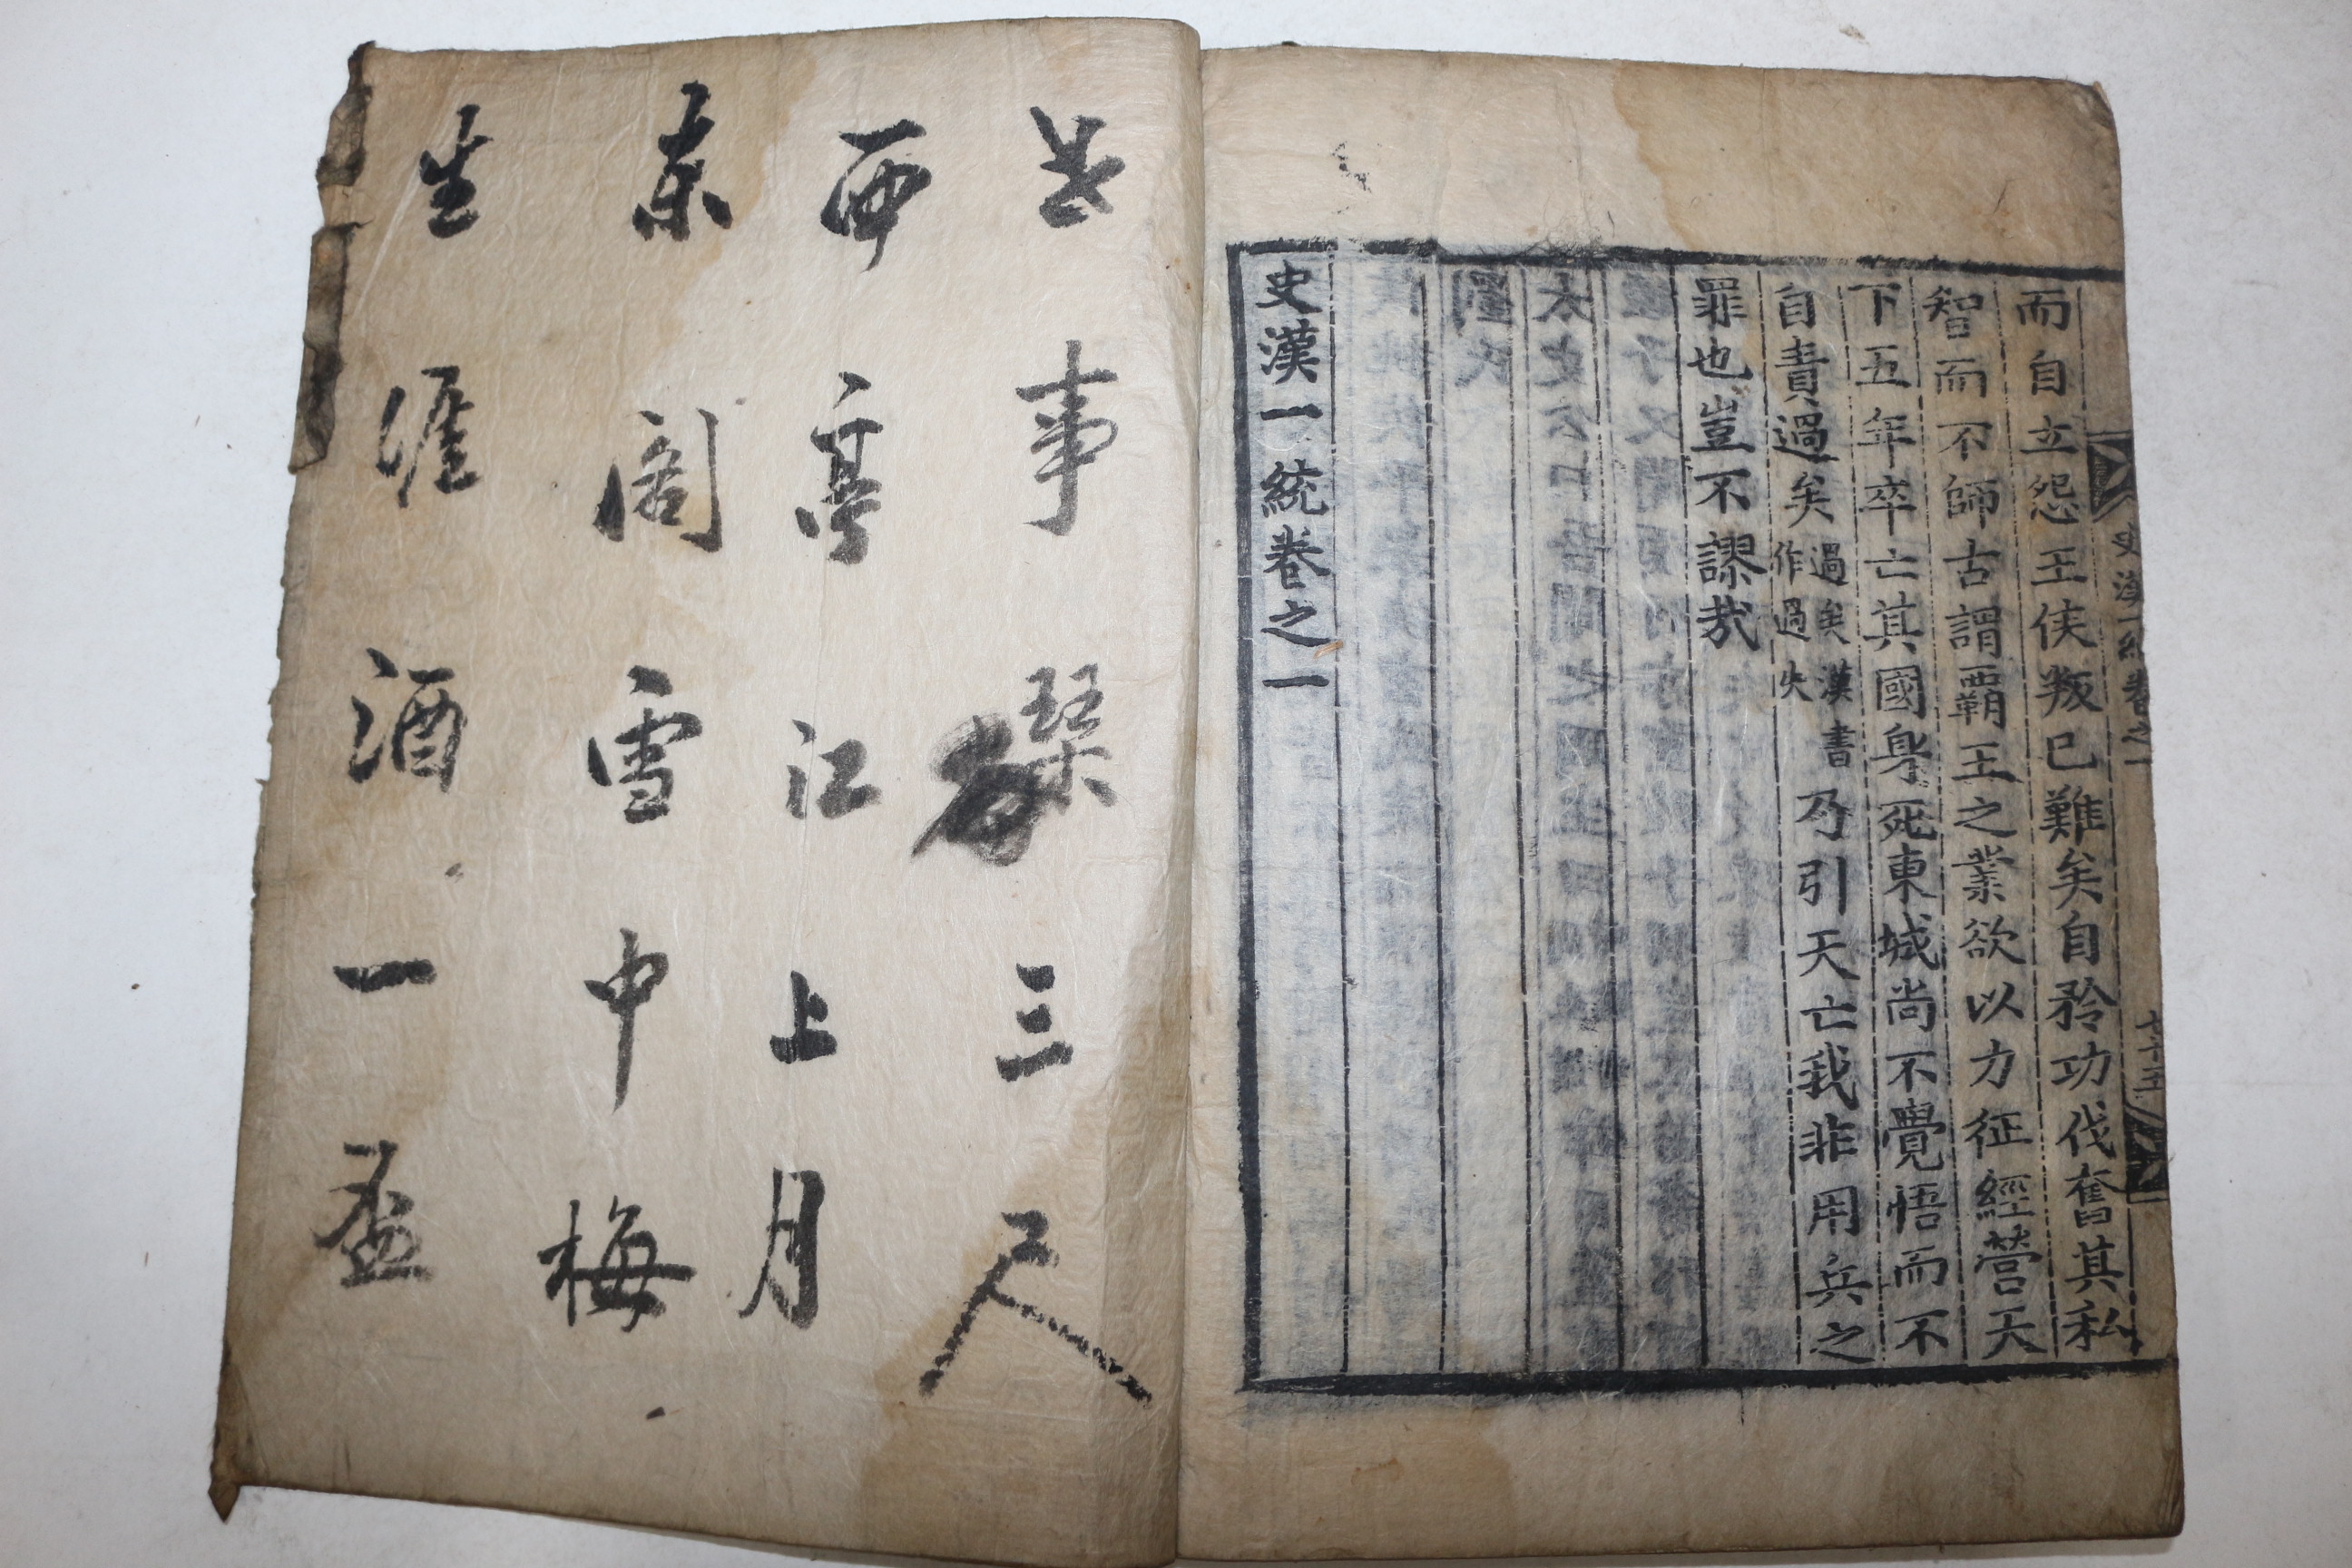 史漢一統卷之一 七十五
而自立怨王侯叛已難矣自矜功伐奮其私
智而不師古謂覇王之業欲以力征經營天
下五年卒亡其國身死東城尚不覺悟而不
自責過矣過矣漢書作過失乃引天亡我非用兵之
罪也豈不謬哉
史漢一統卷之一
世事琴三尺
西亭江上月
東閣雪中梅
生涯酒一盃